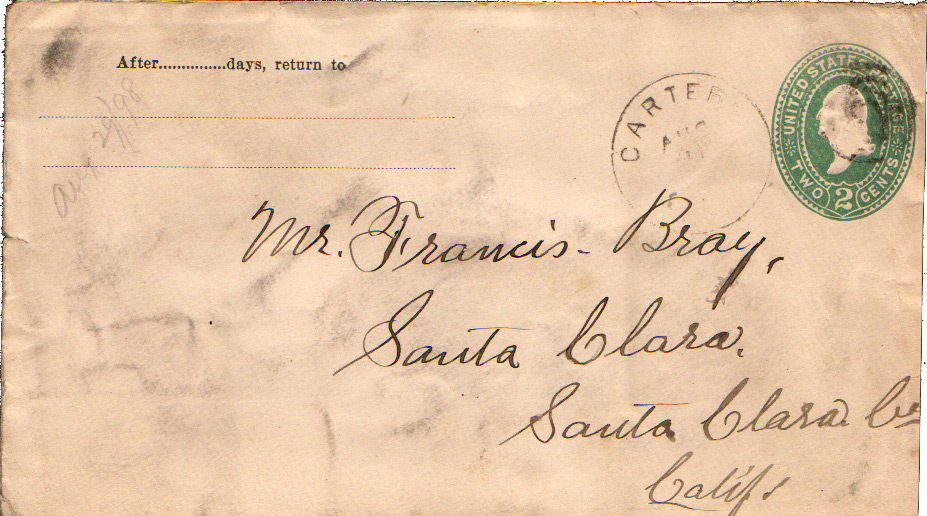 After...............days, return to
Aug 24/98
CARTER
AUG
UNITED STATES POSTAGE
TWO 2 CENTS
Mr. Francis - Bray,
Santa Clara.
Santa Clara. Co
Calif.